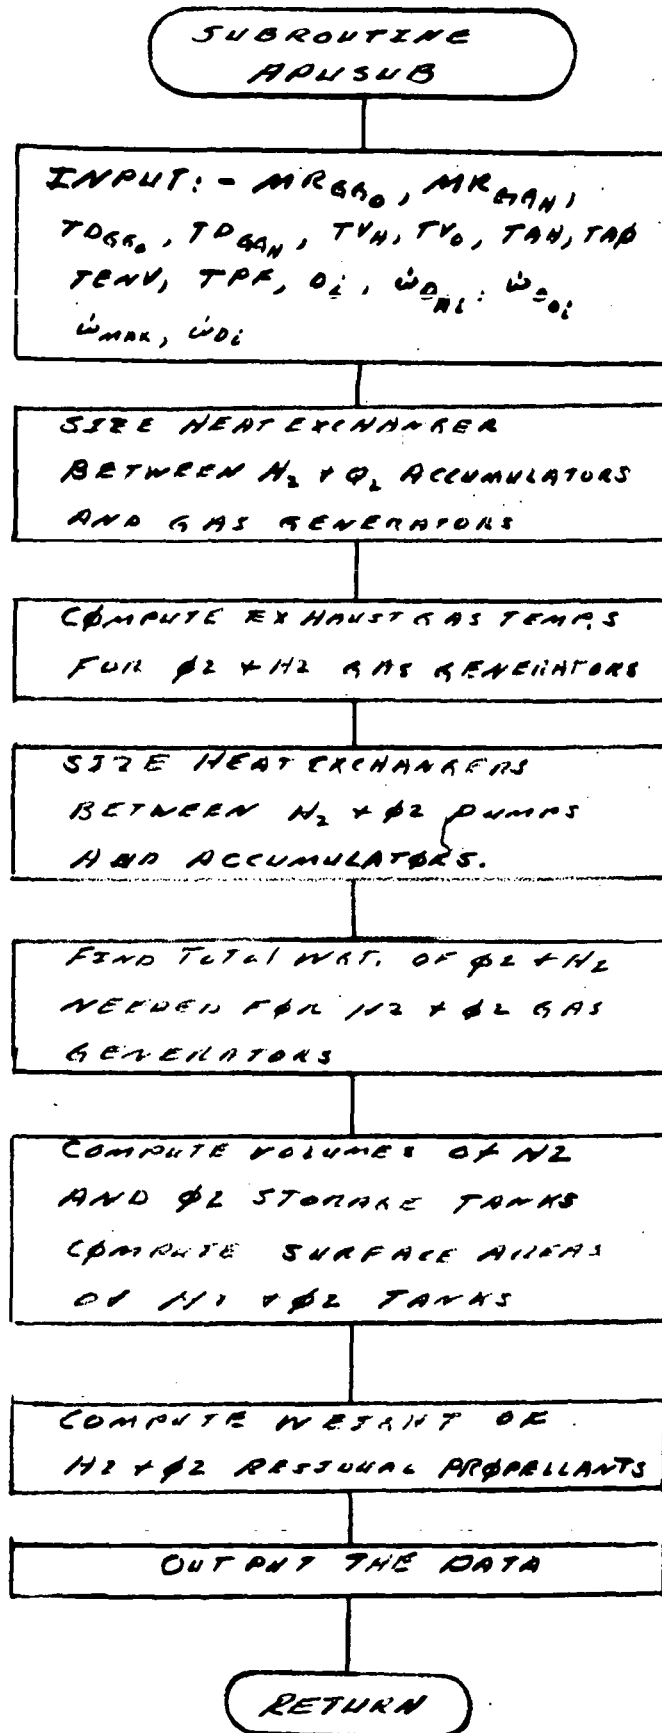 SUBROUTINE
APUSUB
INPUT:- MR_GG_O, MR_GG_H,
TD_GG_O, TD_GG_H, TV_H, TV_O, TAH, TAØ
TENV, TPF, D_i, ẇ_D_Hi, ẇ_D_Oi
ẇ_MAX, ẇ_Di
SIZE HEAT EXCHANGER
BETWEEN H₂ + O₂ ACCUMULATORS
AND GAS GENERATORS
CØMPUTE EXHAUST GAS TEMPS
FOR Ø2 + H2 GAS GENERATORS
SIZE HEAT EXCHANGERS
BETWEEN H₂ + Ø2 PUMPS
AND ACCUMULATØRS.
FIND TOTAL WGT. OF Ø2 + H₂
NEEDED FØR H2 + Ø2 GAS
GENERATORS
COMPUTE VOLUMES OF H2
AND Ø2 STORAGE TANKS
CØMPUTE SURFACE AREAS
OF H2 + Ø2 TANKS
COMPUTE WEIGHT OF
H2 + Ø2 RESIDUAL PRØPELLANTS
OUTPUT THE DATA
RETURN